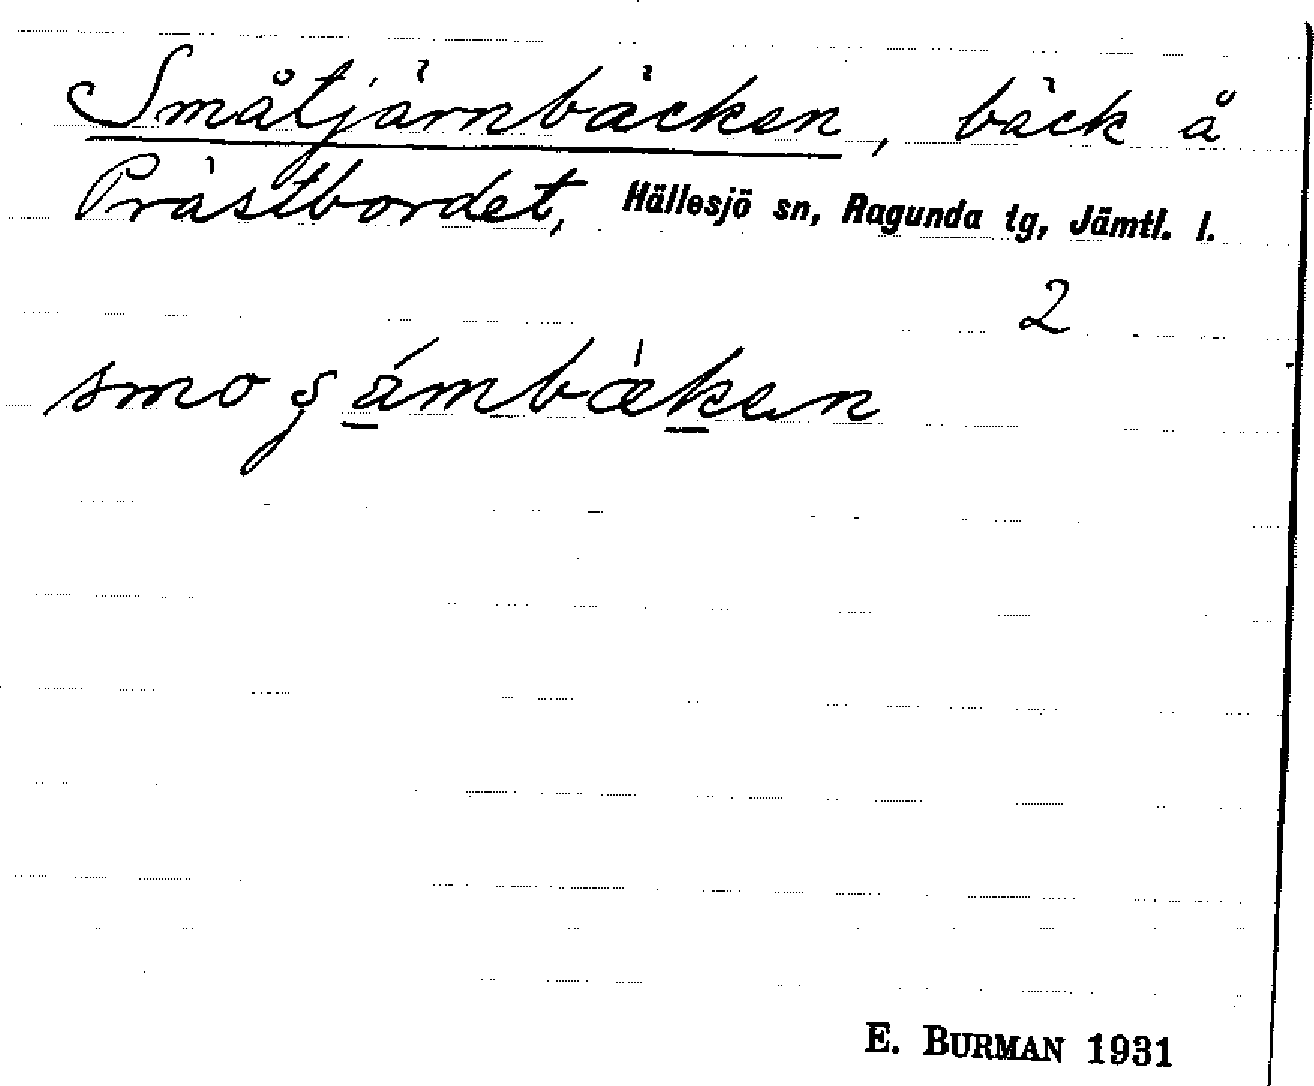 Småtjärnbäcken, bäck å
Prästbordet, Hällesjö sn, Ragunda tg, Jämtl. l.
2
E. BURMAN 1931